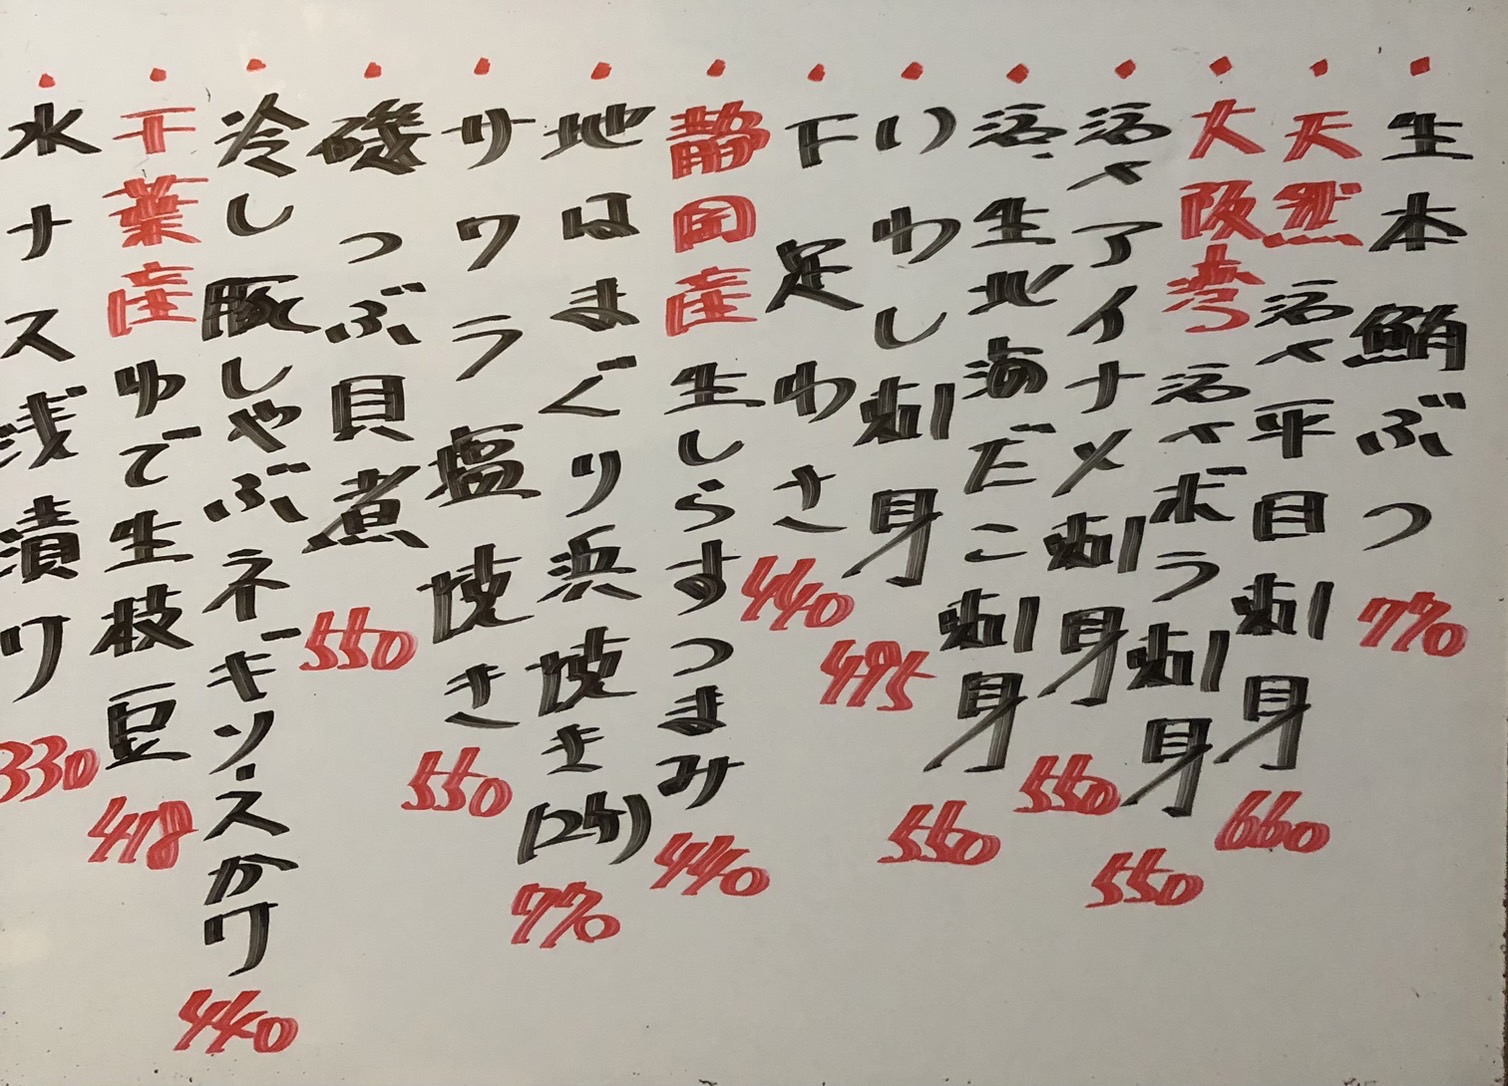 ・生本鮪ぶつ 770
・天然活〆平目刺身 660
・大阪湾活〆ボラ刺身 550
・活〆アイナメ刺身 550
・活生北海だこ刺身 550
・いわし刺身 495
・下足わさ 440
・静岡産生しらすつまみ 440
・地はまぐり浜焼き(2ケ) 770
・サワラ塩焼き 550
・磯つぶ貝煮 550
・冷し豚しゃぶネギソースかけ 440
・千葉産ゆで生枝豆 418
・水ナス浅漬け 330